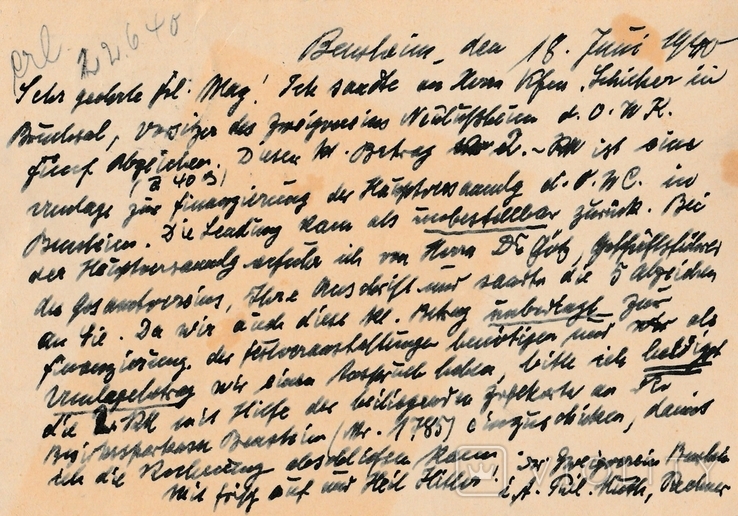 erl. 22.6.40
Bensheim, den 18. Juni 1940
Sehr geehrte Frl. May! Ich sandte an Herrn Schücker in
Bruchsal, Vorsitzer des Zweigvereins Neulussheim d. O. W. K.
fünf Abzeichen. Dieser kl. Betrag 2.- RM ist eine
(à 40 ₰)
Umlage zur Finanzierung der Hauptversammlg d. O. W. C. in
Bensheim. Die Sendung kam als unbestellbar zurück. Bei
der Hauptversammlg erfuhr ich von Herrn Dr Götz, Geschäftsführer
des Gesamtvereins, Ihre Anschrift und sandte die 5 Abzeichen
an Sie. Da wir auch diese kl. Betrag unbedingt zur
Finanzierung der Festveranstaltungen benötigen und als
Umlagebetrag wir einen Anspruch haben, bitte ich baldigst
die 2 RM mit Hilfe der beiliegenden Zahlkarte an die
Bezirkssparkasse Bensheim (Nr. 1785) einzuschicken, damit
ich die Rechnung abschließen kann.
Mit frisch auf und Heil Hitler!
Der Zweigverein Bensheim
i. A. Phil. Huth, Rechner
VIOLITY